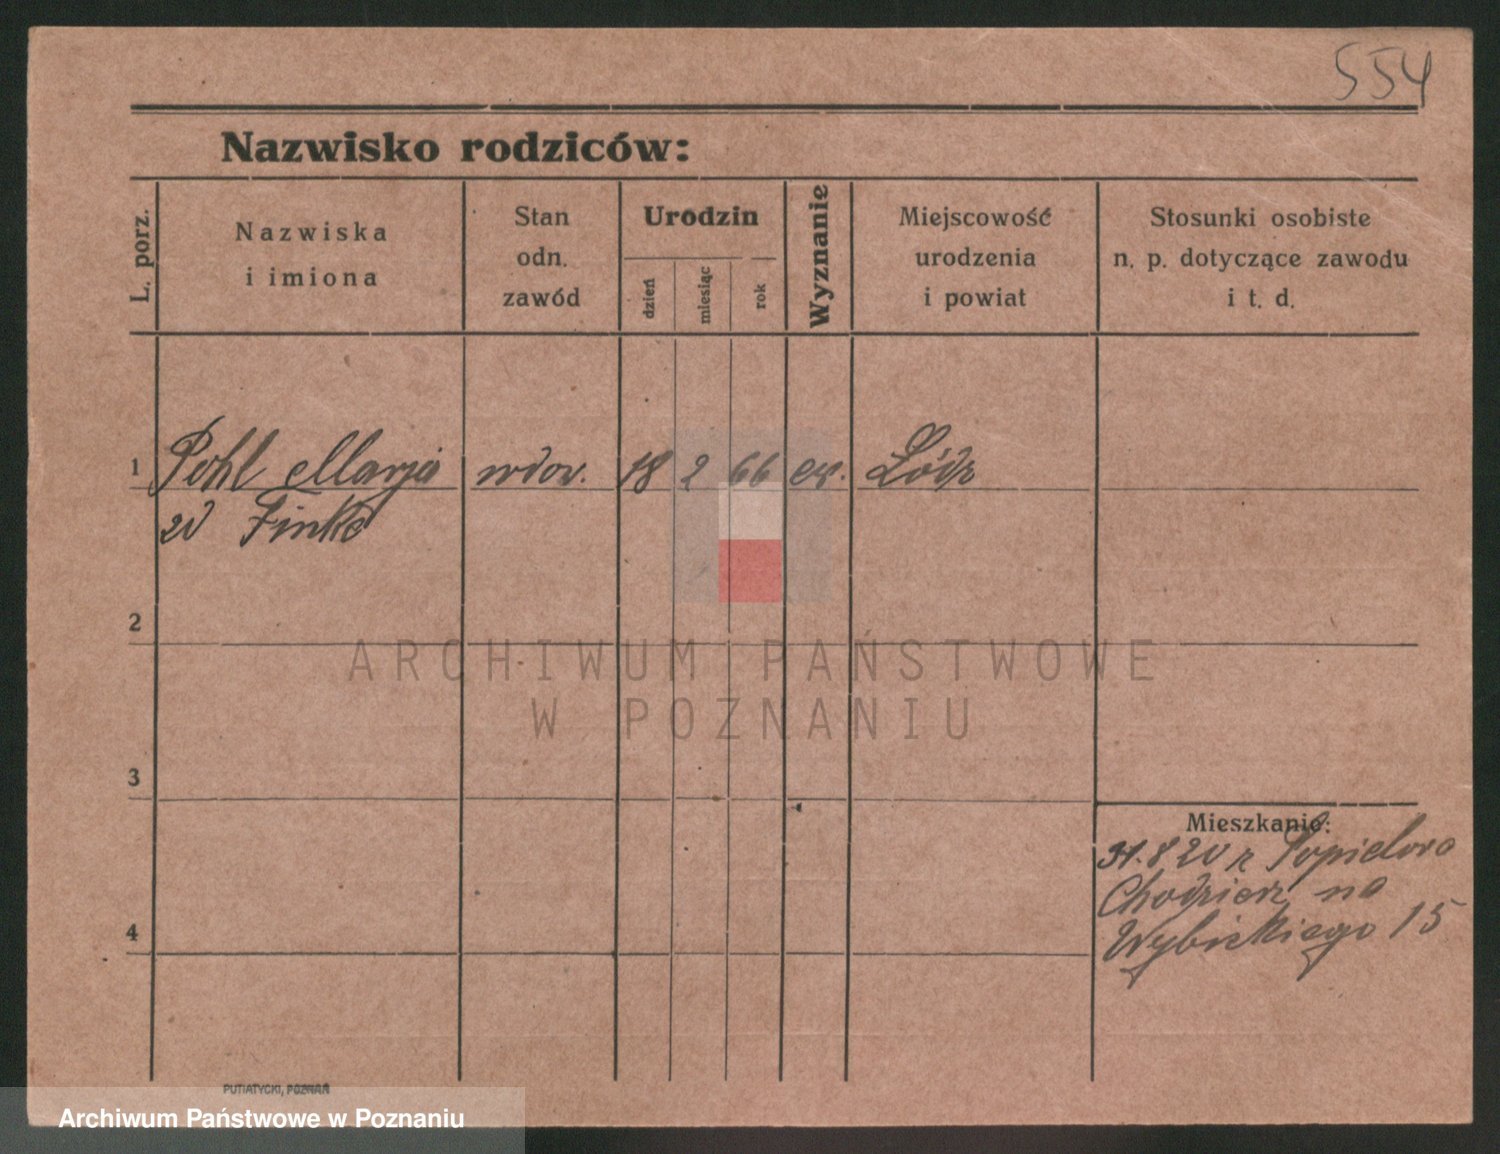 554
Nazwisko rodziców:
L. porz.
Nazwiska
i imiona
Stan
odn.
zawód
Urodzin
dzień
miesiąc
rok
Wyznanie
Miejscowość
urodzenia
i powiat
Stosunki osobiste
n. p. dotyczące zawodu
i t. d.
1 Pohl Marja wdow. 18 2 66 ew. Łódź
zd Finke
2
ARCHIWUM PAŃSTWOWE
W POZNANIU
3
Mieszkanie:
31.8 20 z
Chodzież na
4
Wybickiego 15
PUTIATYCKI, POZNAŃ
Archiwum Państwowe w Poznaniu